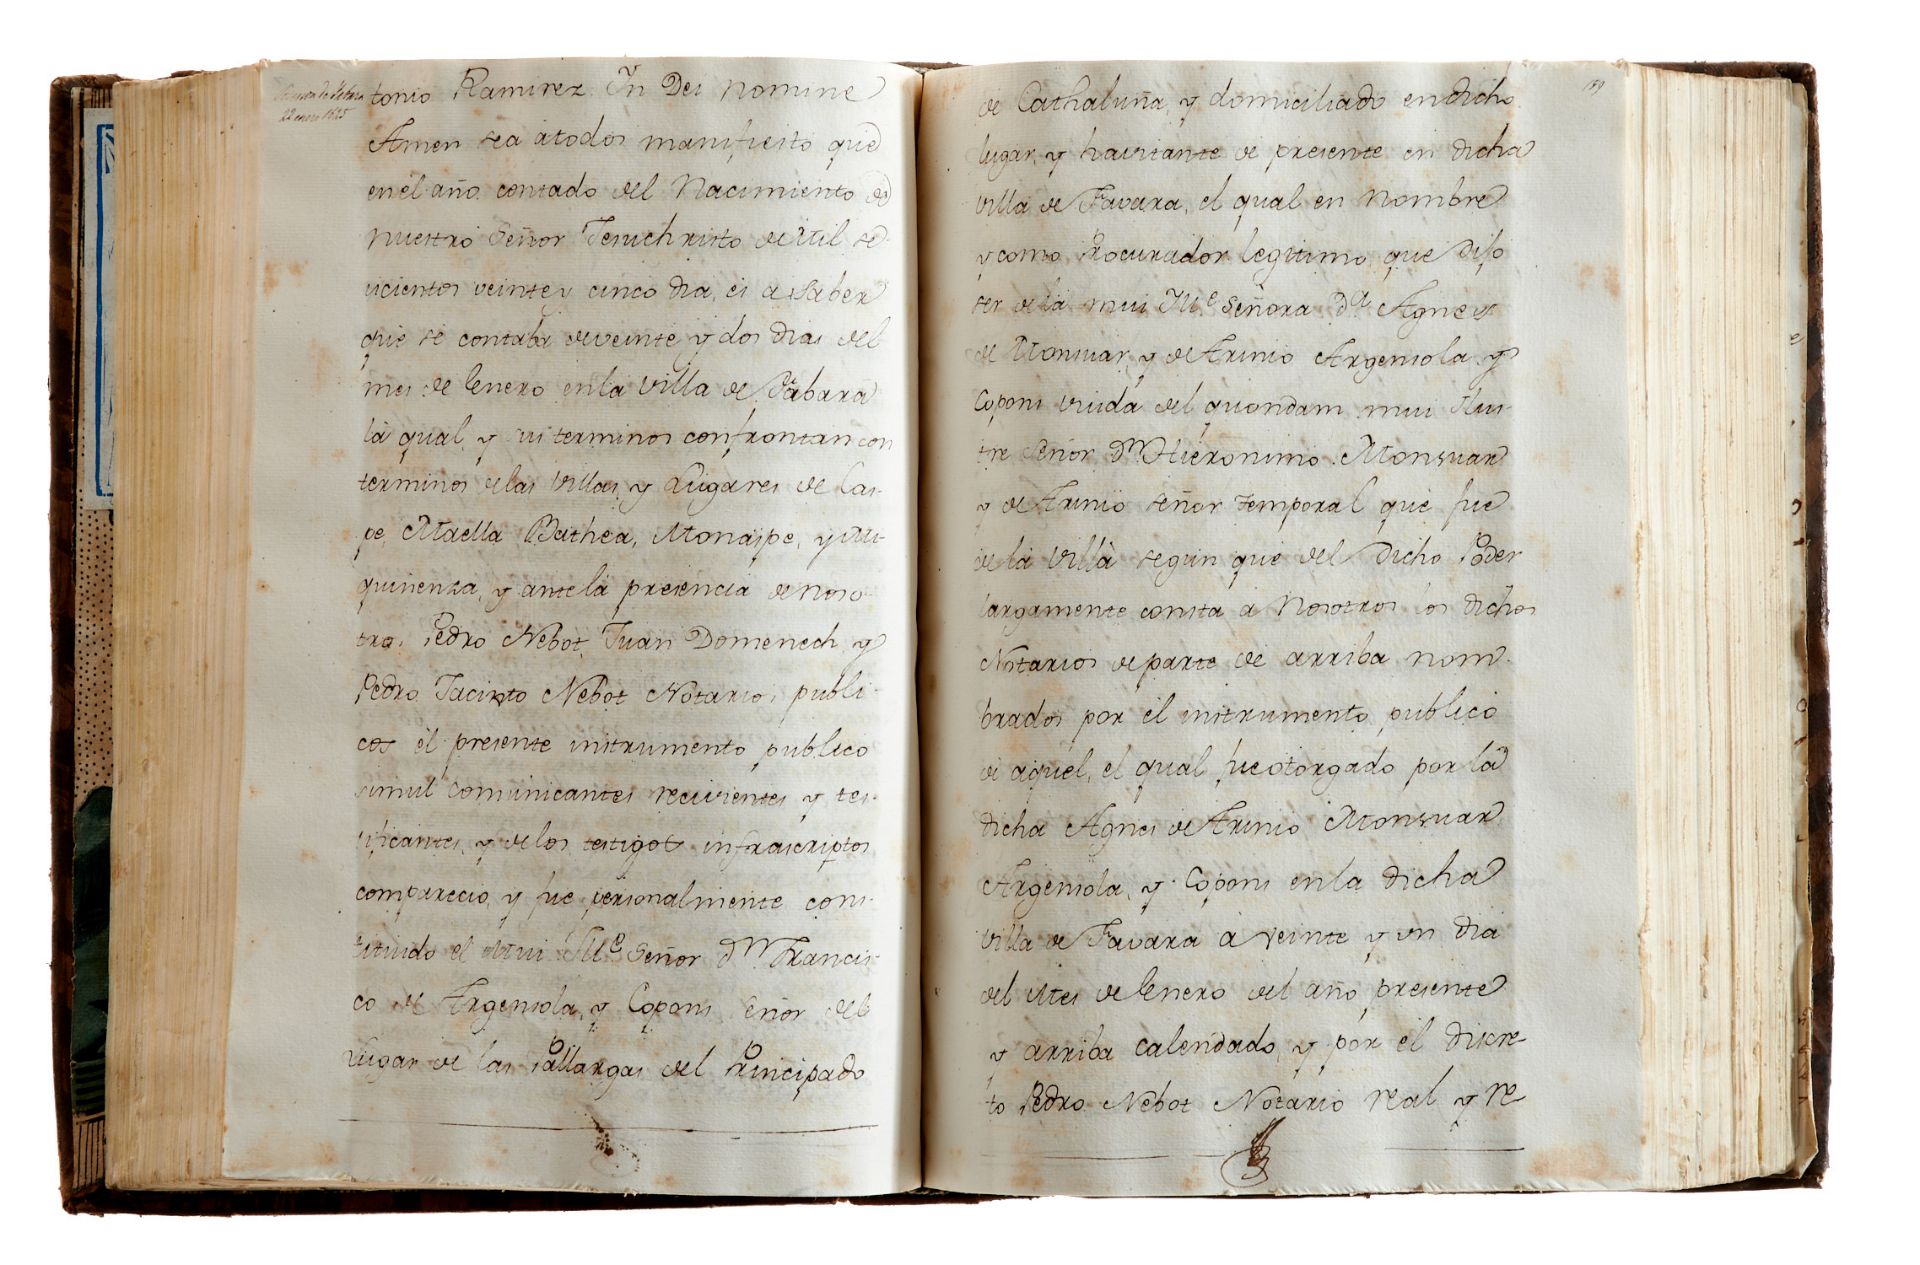 22 enero 1625
tonio Ramirez. In Dei Nomine
Amen sea atodos manifiesto que
en el año contado del Nacimiento de
nuestro Señor Jesuchristo de Mil se-
icientos veinte y cinco dia, es a saber
que se contaba deveinte y dos dias del
mes de Enero enla Villa de Fabara
la qual, y sus terminos confrontan con
terminos delas Villas, y Lugares de Cas-
pe, Maella Bathea, Monaspe, y Mi-
quinenza, y antela presencia de noso
tros Pedro Nebot Juan Domenech, y
Pedro Jacinto Nebot Notarios publi-
cos el presente instrumento publico
simul comunicantes recivientes y tes-
tificantes, y de los testigos infrascriptos
comparecio, y fue personalmente cons-
tituido el Mui Ille Señor Dn Francis-
co de Argensola, y Copons Señor del
Lugar de las Pallargas del Principado
159
de Cathaluña, y domiciliado en dicho
lugar, y havitante de presente en dicha
villa de Favara, el qual en Nombre
y como Procurador legitimo que dijo
ser de la mui Ille Señora Da Agnes
de Monsuar, y de Arinio Argensola y
Copons Viuda del quondam mui Ilus-
tre Señor Dn Hieronimo Monsuar
y de Arinio señor temporal que fue
de la Villa segun que del dicho Poder
largamente consta a Nosotros los dichos
Notarios de parte de arriba nom-
brados por el instrumento publico
de aquel, el qual fue otorgado por la
dicha Agnes de Arinio Monsuar
Argensola, y Copons en la dicha
Villa de Favara a veinte y un dia
del Mes de Enero del año presente
y arriba calendado, y por el discre-
to Pedro Nebot Notario real y re